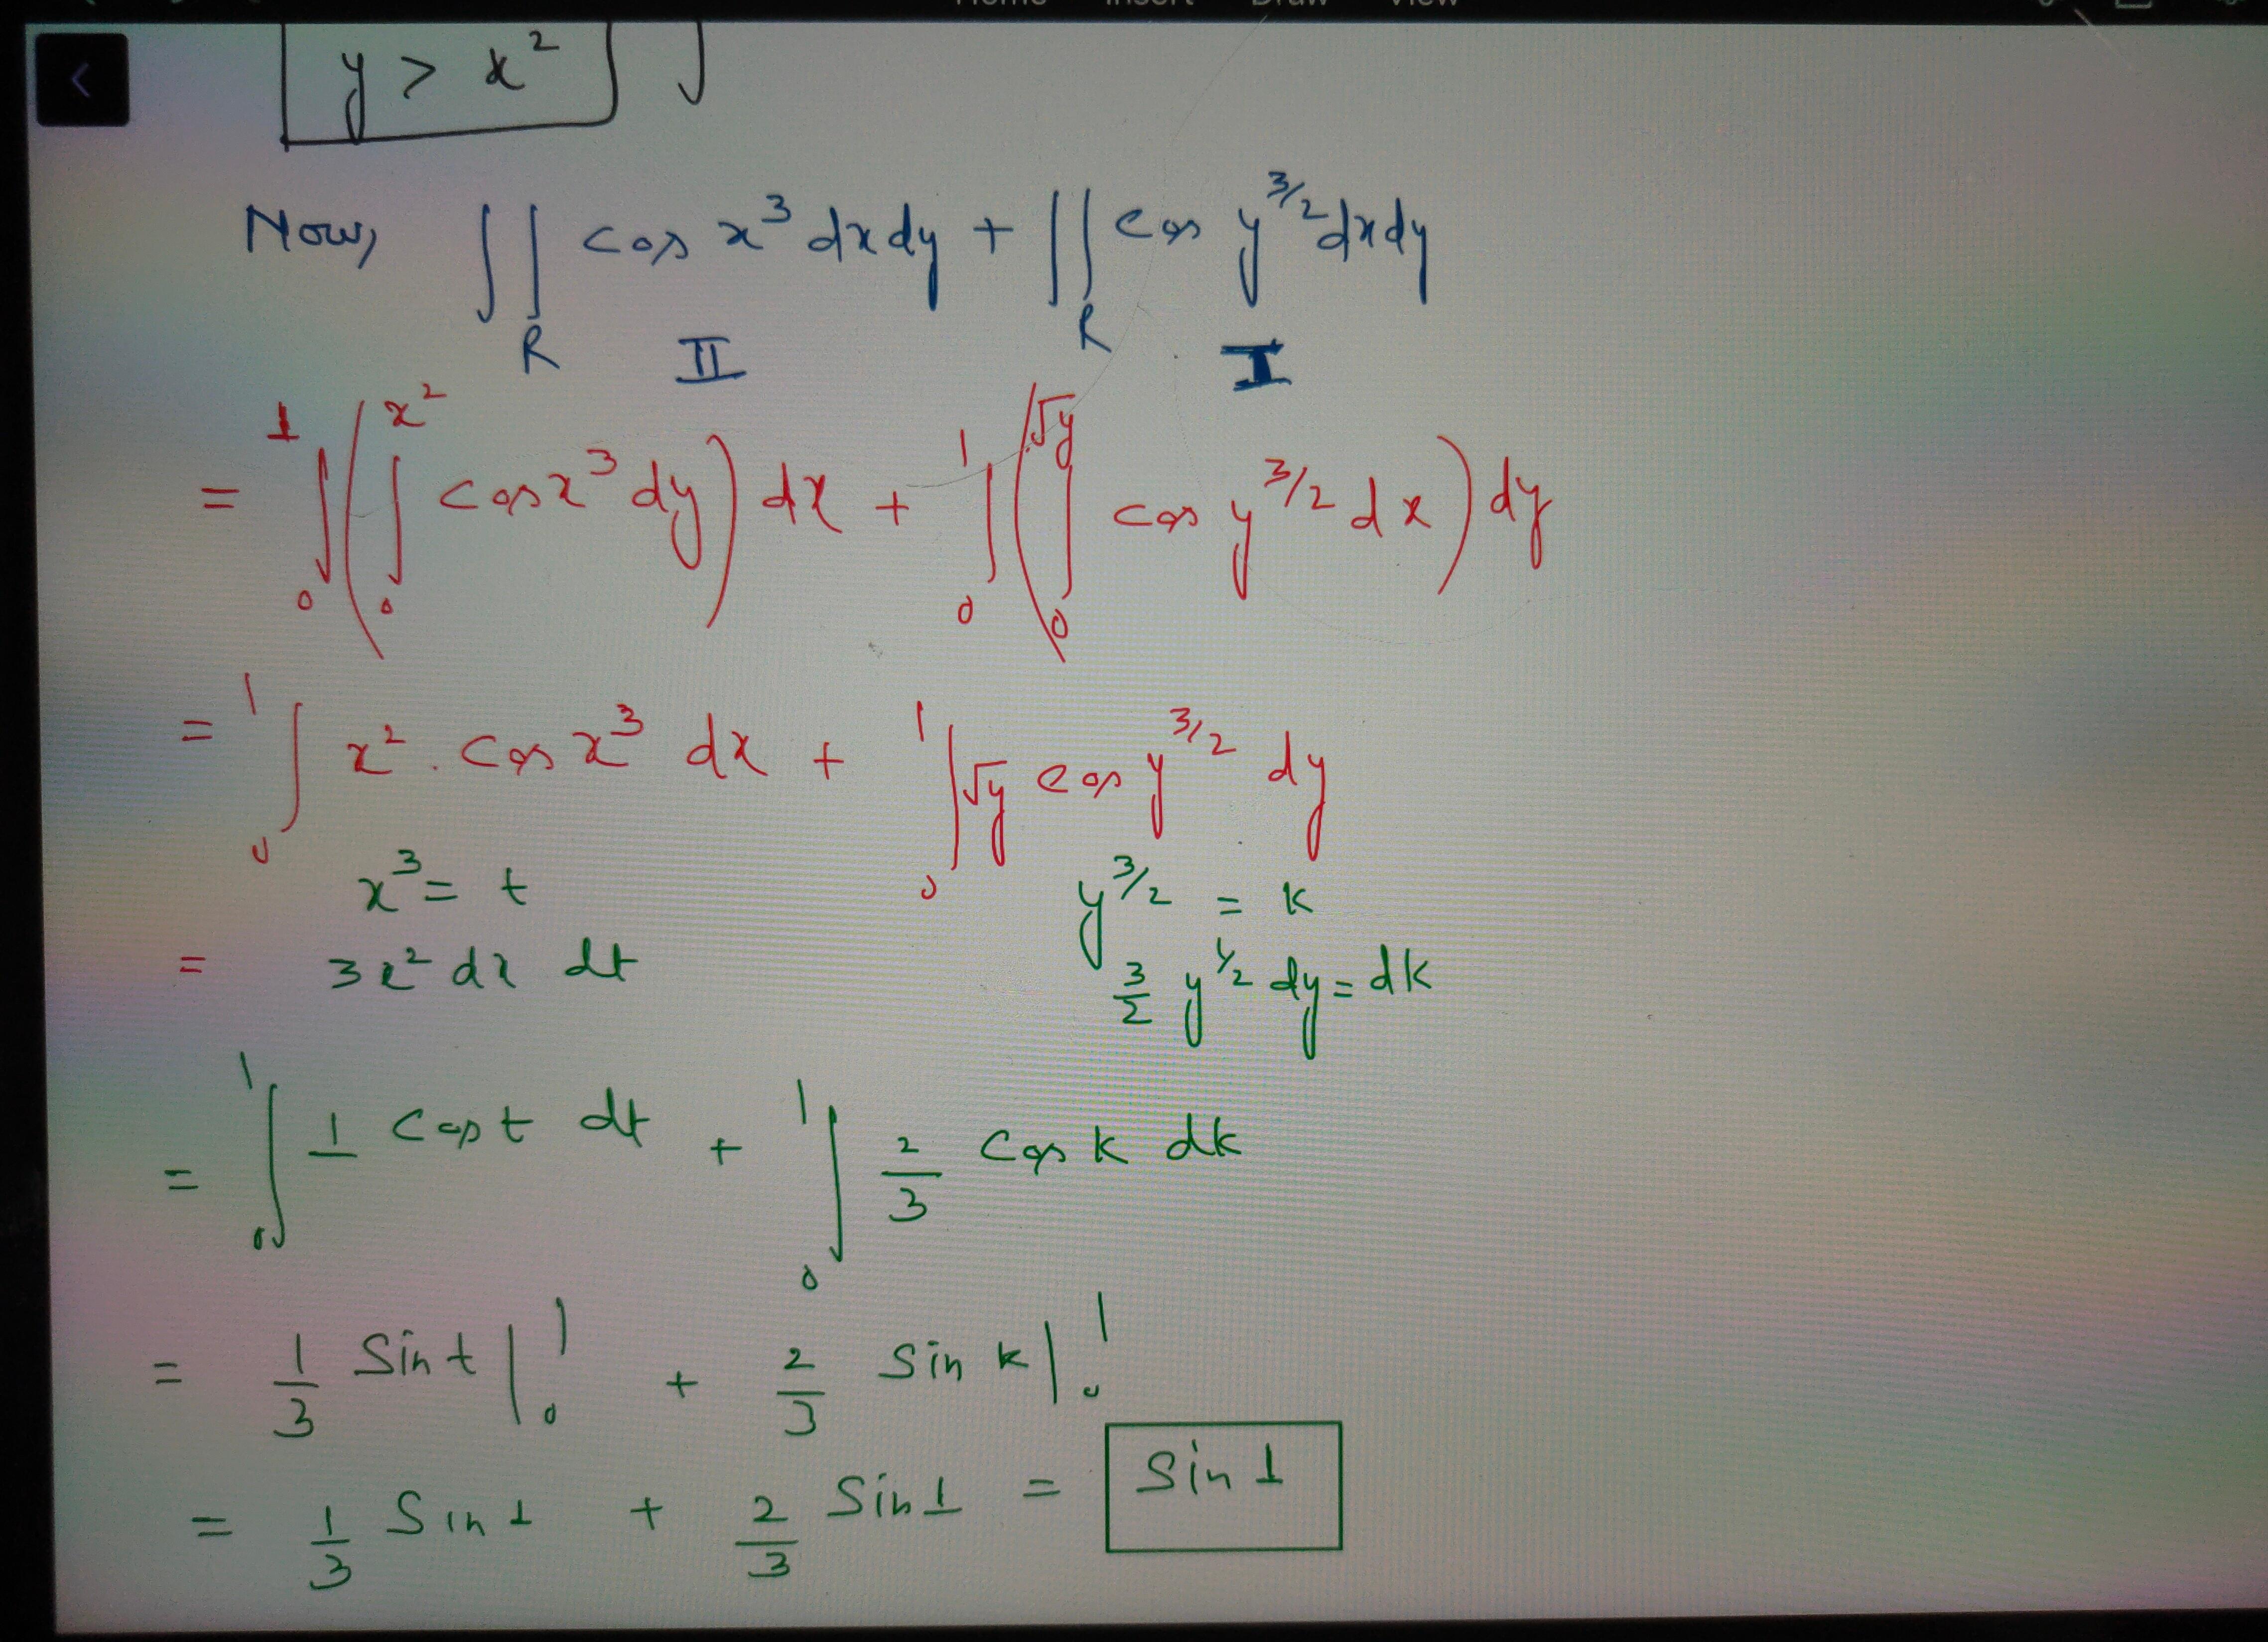 Home Insert Draw View
y > x²
Now, ∬_R cos x³ dx dy + ∬_R cos y^{3/2} dx dy
II I
= ∫₀¹ ( ∫₀^{x²} cos x³ dy ) dx + ∫₀¹ ( ∫₀^{√y} cos y^{3/2} dx ) dy
= ∫₀¹ x² . cos x³ dx + ∫₀¹ √y cos y^{3/2} dy
x³ = t y^{3/2} = k
= 3x² dx dt 3/2 y^{1/2} dy = dk
= ∫₀¹ 1 cos t dt + ∫₀¹ 2/3 cos k dk
= 1/3 Sin t |₀¹ + 2/3 Sin k |₀¹
= 1/3 Sin 1 + 2/3 Sin 1 = Sin 1